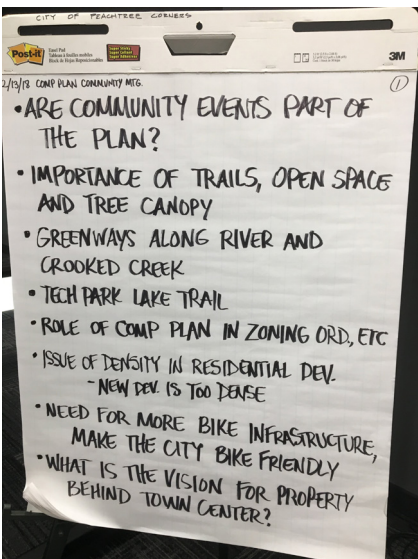 CITY OF PEACHTREE CORNERS
Post-it
Easel Pad
Tableau à feuilles mobiles
Super Sticky
3M
2/13/18 COMP PLAN COMMUNITY MTG.
1
• ARE COMMUNITY EVENTS PART OF
THE PLAN?
• IMPORTANCE OF TRAILS, OPEN SPACE
AND TREE CANOPY
• GREENWAYS ALONG RIVER AND
CROOKED CREEK
• TECH PARK LAKE TRAIL
• ROLE OF COMP PLAN IN ZONING ORD., ETC
• ISSUE OF DENSITY IN RESIDENTIAL DEV.
- NEW DEV. IS TOO DENSE
• NEED FOR MORE BIKE INFRASTRUCTURE,
MAKE THE CITY BIKE FRIENDLY
• WHAT IS THE VISION FOR PROPERTY
BEHIND TOWN CENTER?